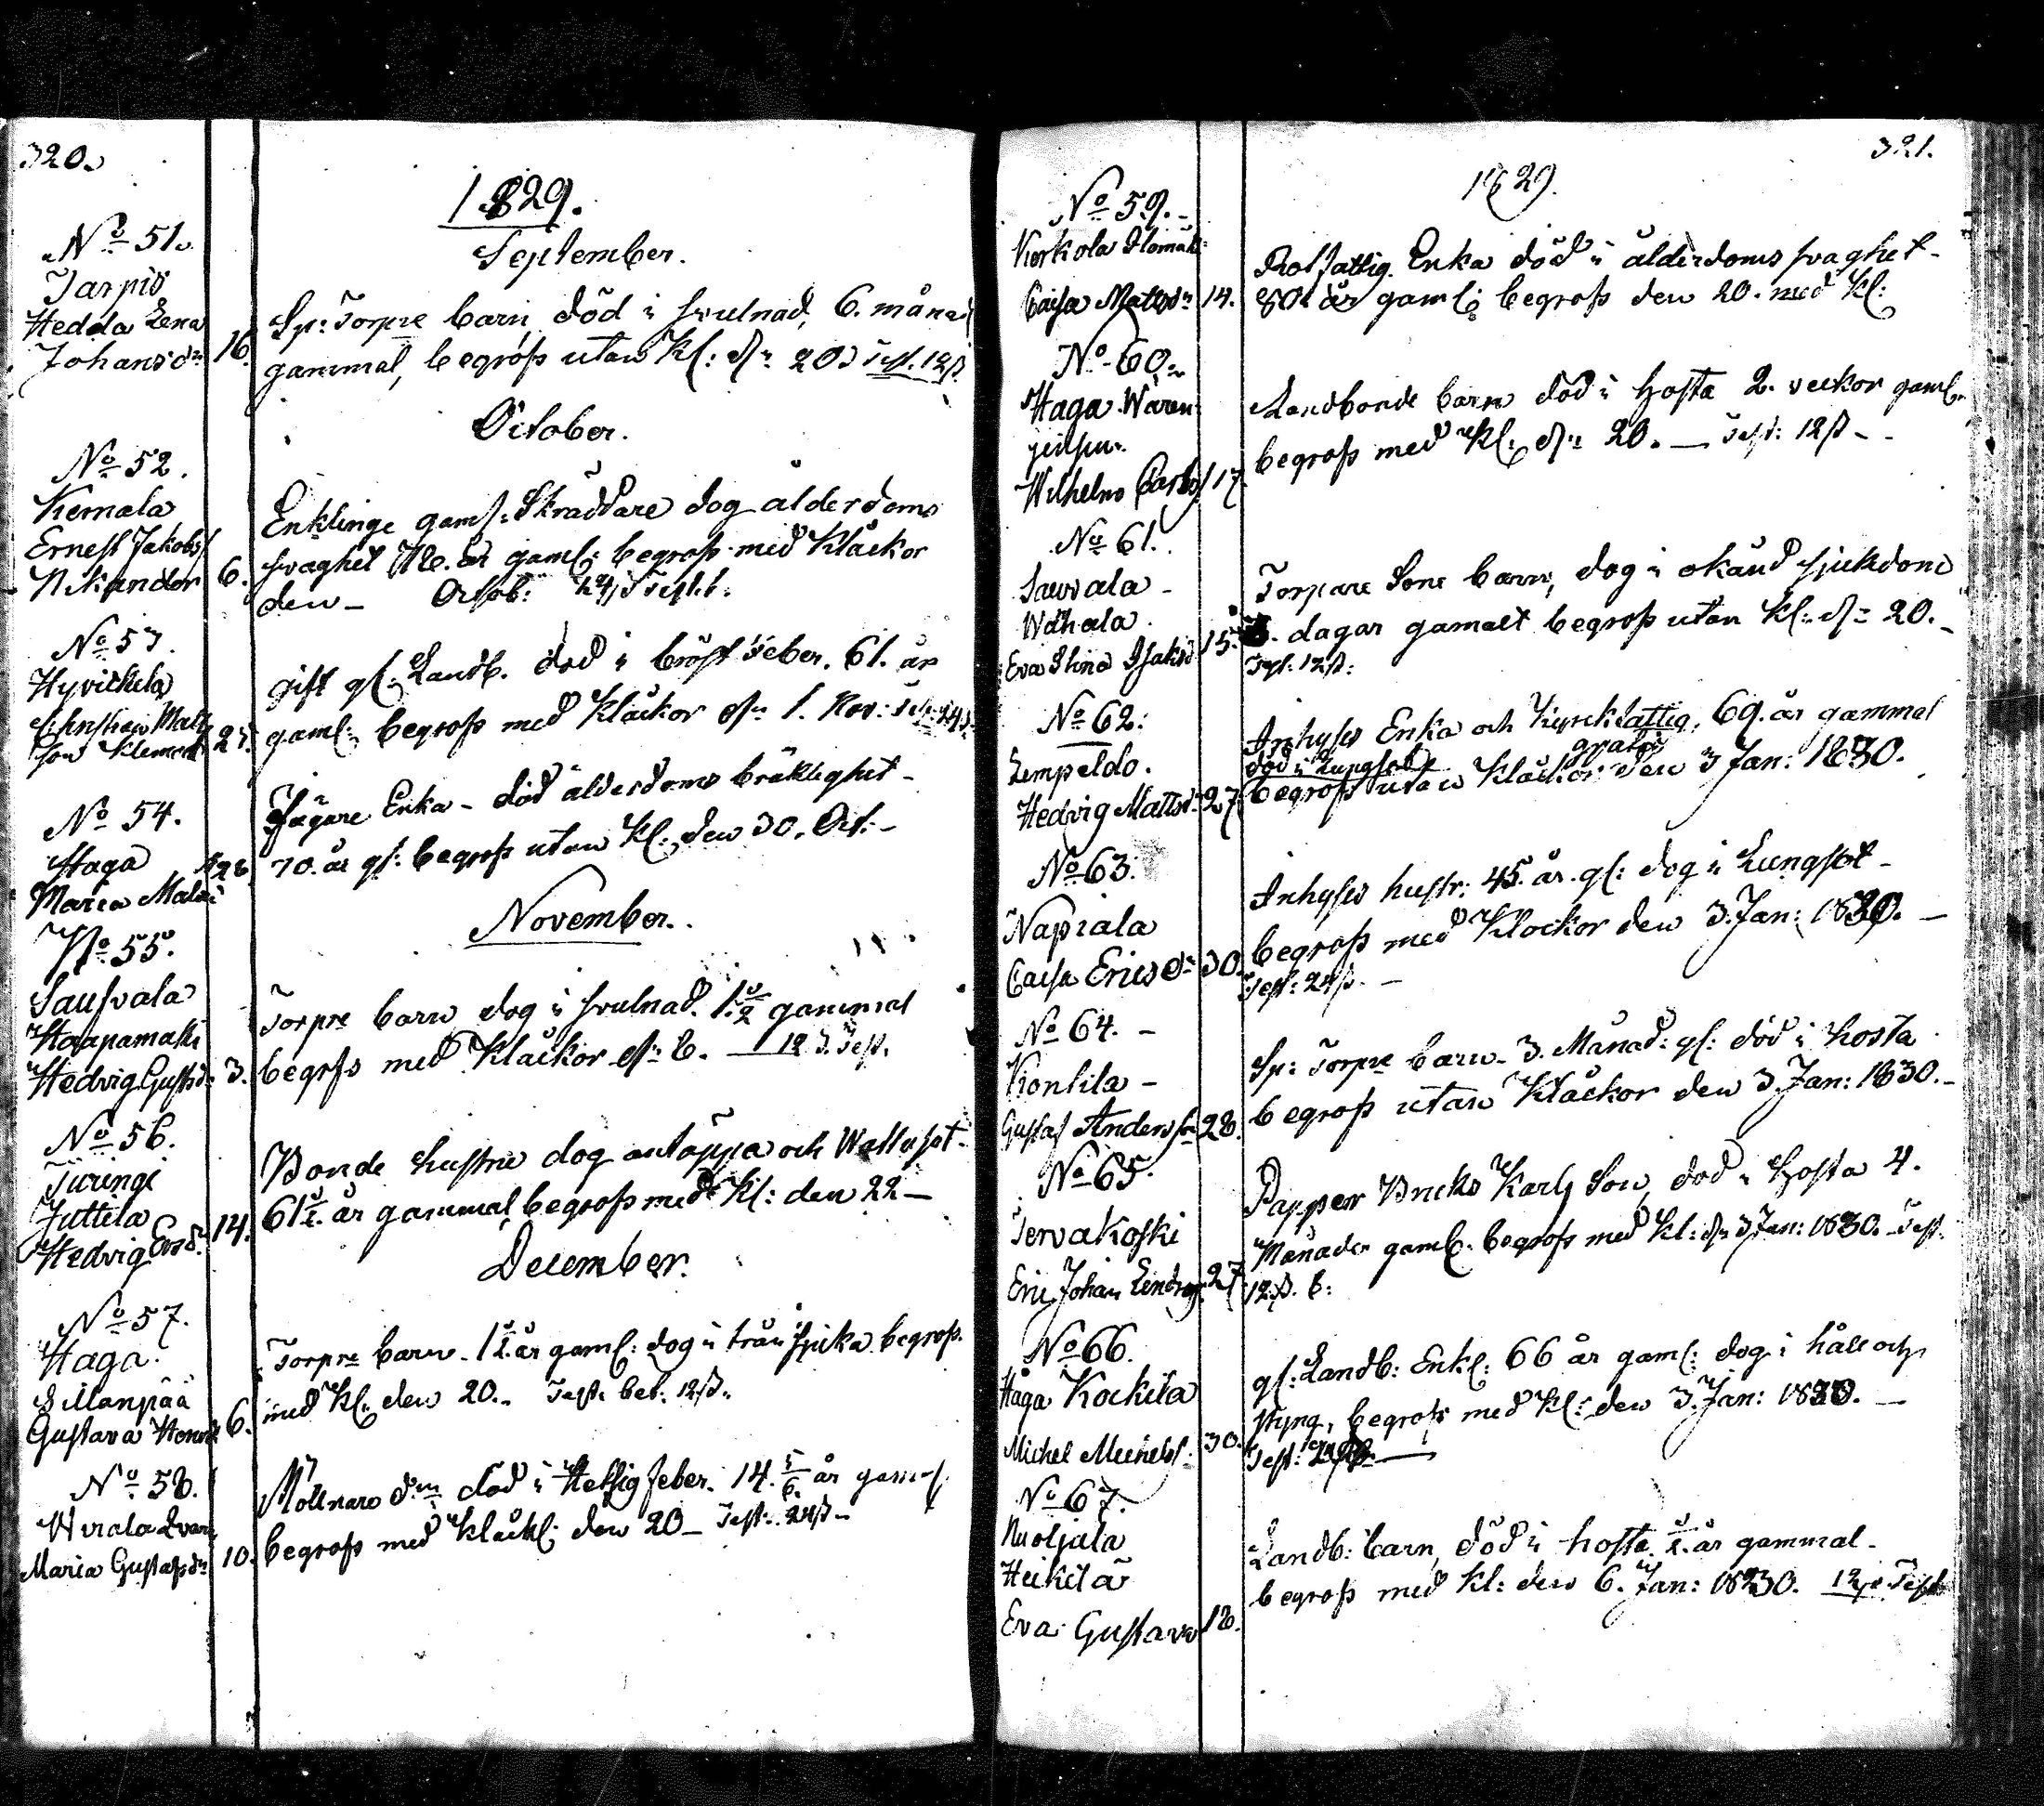 320.
1829.
September.
No 51.
Jarpis
Hedda Lena
Johansdr 16.
Sp: Torpre barn, död i svulnad, 6. månad
gammal, begrofs utan Kl: dn 20 Test. 12 s.
October.
No 52.
Kemala
Ernest Jakobs
Nikander 6.
Enklinge gaml: Skräddare dog ålderdoms
svaghet år gaml: begrofs med Klåckor
den - Octob: 24 s Test:
No 53.
Hyvickela
Christian Matts
son Klemed
gift gl: Landb. död i bröst feber. 61. år
gaml: begrofs med Klåckor dn 1. Nov:
No 54.
Haga 28
Maria
Enka - död ålderdoms bräklighet -
70. år gl: begrofs utan Kl: den 30. Oct: -
November.
No 55.
Saufvala
Haapamaki
Hedvig Gustsdr 3.
Torpre barn dog i svulnad. 1 1/2 gammal
begrfs med Klåckor dn 8. — 12 s. Test.
No 56.
Turengi
Juttila
Hedvig Ersd. 14.
Bonde hustru dog andtäppa och Wattusot -
61 1/2. år gammal, begrofs med Kl: den 22 -
December.
No 57.
Haga.
Sillanpää
Gustava 6.
Torpre barn - 1 1/2 år gaml: dog i trån sjuka begrofs
med Kl: den 20.. Test: bet: 12 s.
No 58.
Hirala
Maria Gustafsdr 10.
Möllnare död i Hettsig feber. 14. 5/6. år gaml
begrofs med Klåck: den 20 - Test: 24 s -
321.
1829.
No 59. -
Korkola Ilomäki
Caisa Mattsdr 14.
Rotfattig. Enka död i ålderdoms svaghet -
80 år gaml: begrofs den 20. med Kl:
No 60.
Haga
Wilhelm Carls 17.
Landbonde barn död i hosta 2. veckor gaml.
begrofs med Kl: dn 20. — Test: 12 s - -
No 61.
Sauvala -
Wähala.
Eva Stina Isaksd 15.
Torpare Sone barn, dog i okänd sjukdom
dagar gamalt begrofs utan Kl: dn 20. -
Test: 12 s:
No 62:
Lempeldo.
Hedvig Mattsd: 27.
Inhyses Enka och Kyrckfattig, 69. år gammal
död i Lungsot gratis
begrofs utan Klåckor den 3 Jan: 1830.
No 63.
Napiala
Caisa Ericsdr 30.
Inhyses hustr: 45. år. gl: dog i Lungsot -
begrofs med Klockor den 3. Jan: 1830. —
Test: 24 s. -
No 64. -
Kontila -
Gustaf Andersson 28.
Sp: Torpre barn - 3. Månad: gl: död i hosta
begrofs utan Klåckor den 3. Jan: 1830. -
No 65.
Tervakoski
Eric Johan 27
Pappers Bruks Karls Son, död i hosta 4.
Månader gaml. begrofs med Kl: dn 3 Jan: 1830. Test.
12 s. b:
No 66.
Haga Kockila
Michel Michelss. 30.
gl: Landb: Enkl: 66 år gaml: dog i håll och
styng, begrofs med Kl: den 3. Jan: 1830. —
Test:
No 67.
Nuoliala
Heikilä
Eva Gustava 18.
Landb: barn, död i hosta 1/2. år gammal -
begrofs med Kl: den 6. Jan: 1830. 12 s. Test